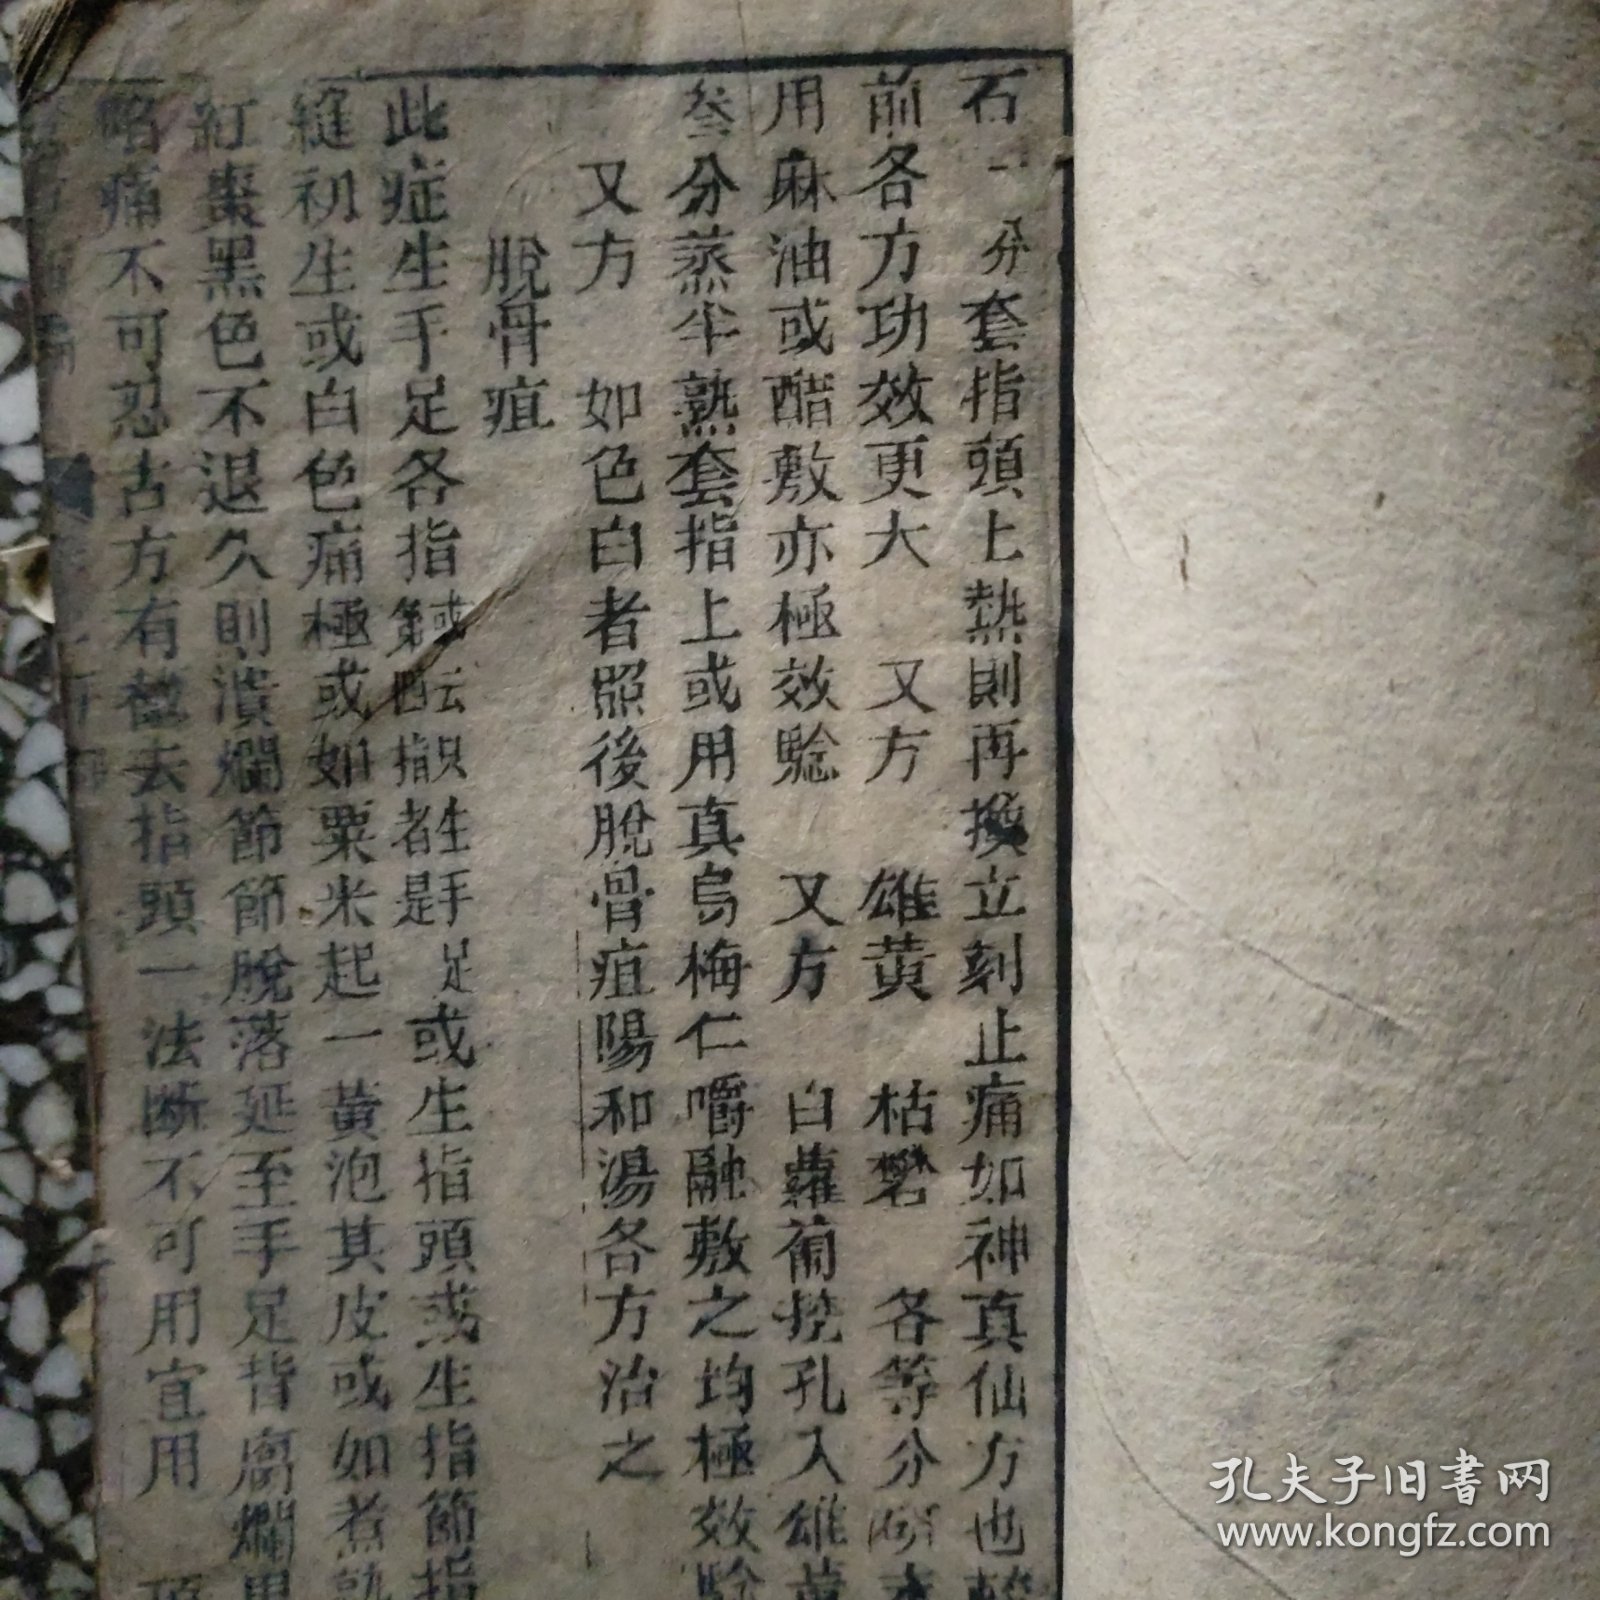 石一分套指頭上熱則再換立刻止痛如神真仙方也
前各方功效更大　又方　雄黃　枯礬　各等分研
用麻油或醋敷亦極效驗　又方　白蘿蔔挖孔入雄黃
叁分蒸半熟套指上或用真烏梅仁嚼融敷之均極效驗
又方　如色白者照後脫骨疽陽和湯各方治之
脫骨疽
此症生手足各指或云只生手足第四指者是或生指頭或生指節指
縫初生或白色痛極或如粟米起一黃泡其皮或如煮熟
紅棗黑色不退久則潰爛節節脫落延至手足背腐爛黑
陷痛不可忍古方有截去指頭一法断不可用宜用　頂
孔夫子旧書网
www.kongfz.com